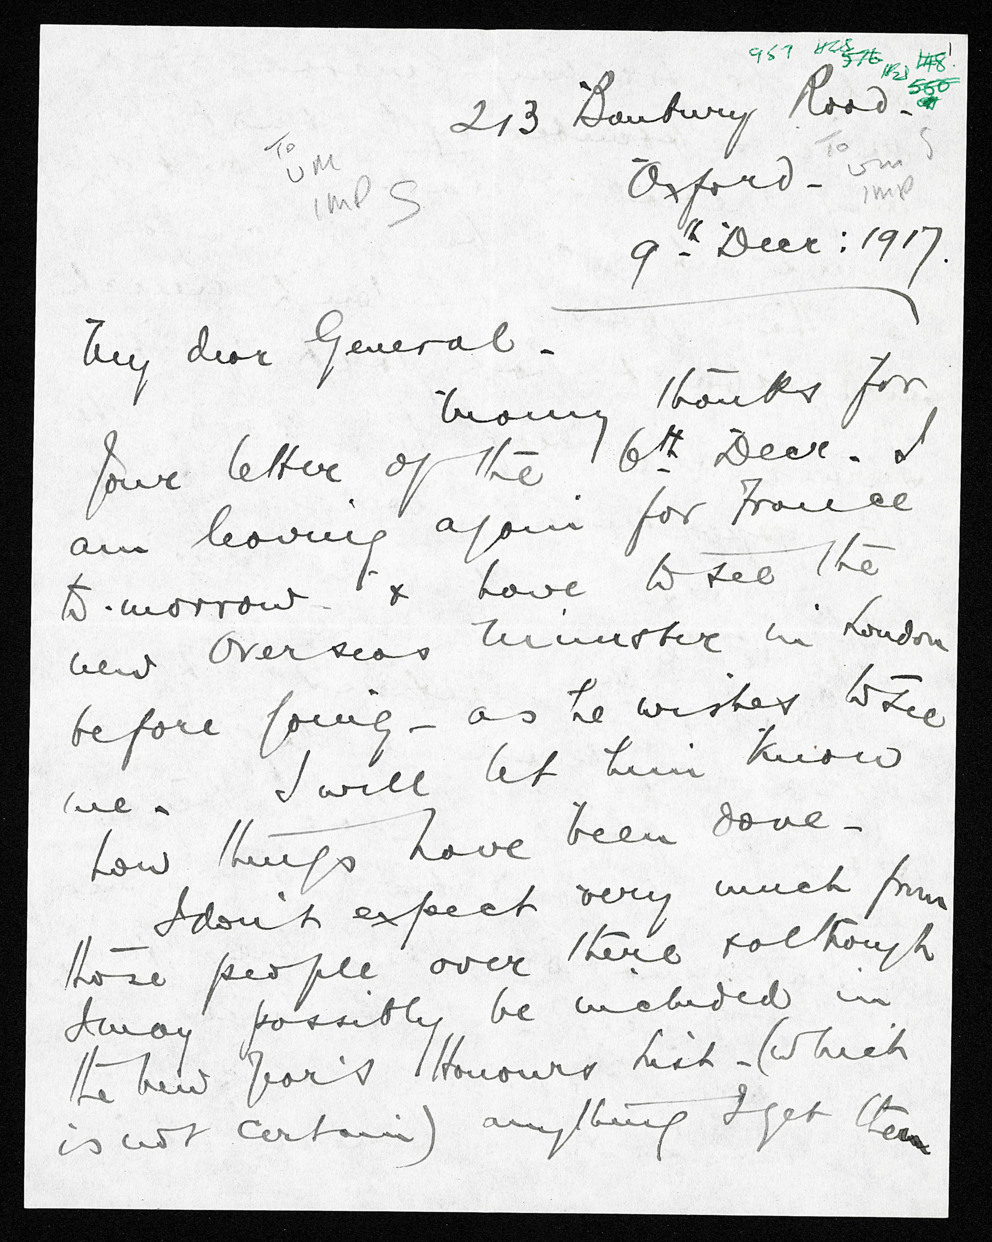 957
213 Banbury Road -
To
VM
IMP S
To
VM
IMP
S
Oxford -
9th Decr: 1917.
My dear General -
Many thanks for
your letter of the 6th Decr. I
am leaving again for France
to-morrow & have to see the
new Overseas Minister in London
before going - as he wishes to see
me. I will let him know
how things have been done -
I don't expect very much from
those people over there & although
I may possibly be included in
the New Year's Honours List - (which
is not certain) anything I get then